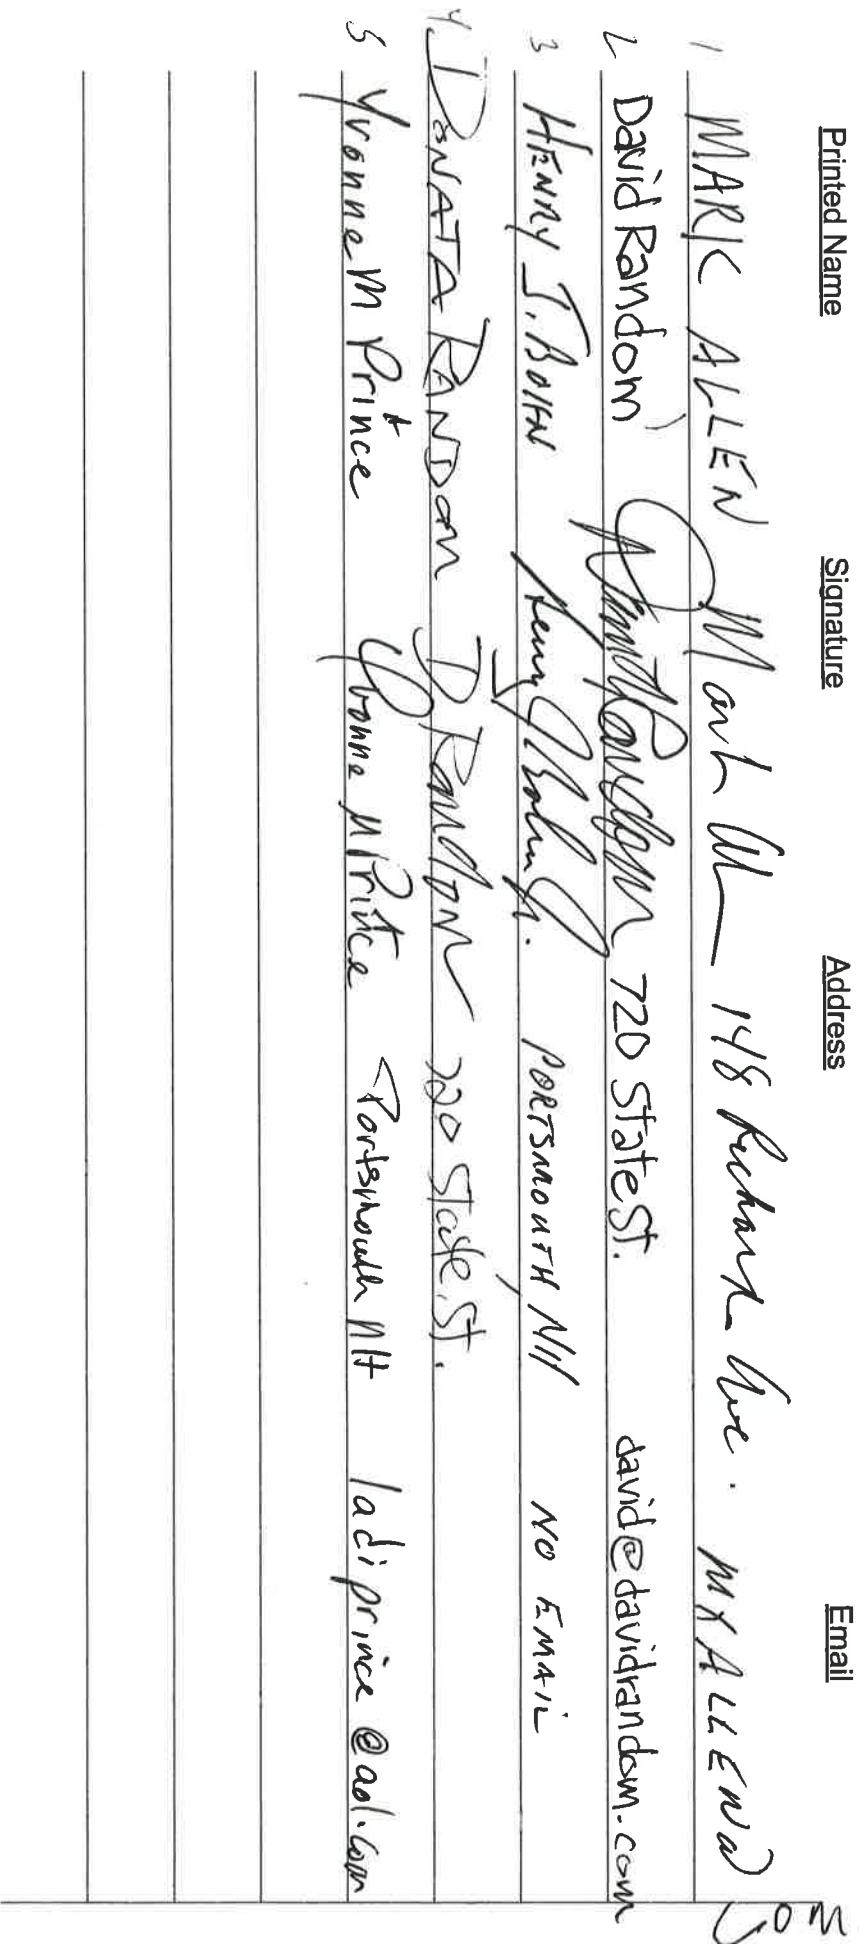 Printed Name Signature Address Email
1 MARK ALLEN Mark 148 Richards Ave. MXALLEN@
2 David Random David Random 720 State St. david@davidrandom.com
3 HENRY J. Henry J PORTSMOUTH NH NO EMAIL
4. DONATA RANDOM D Random 720 State St.
5 Yvonne M Prince Yvonne M Prince Portsmouth NH ladiprince@aol.com